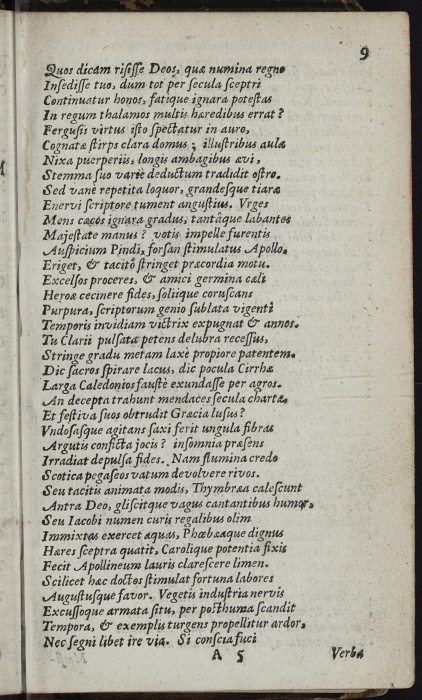 9
Quos dicam risisse Deos, quæ numina regno
Insedisse tuo, dum tot per secula sceptri
Continuatur honos, fatique ignara potestas
In regum thalamos multis hæredibus errat?
Fergusii virtus isto spectatur in auro,
Cognatæ stirps clara domus; illustribus aulæ
Nixa puerperiis, longis ambagibus ævi,
Stemma suo variè deductum tradidit ostro.
Sed vanè repetita loquor, grandesque tiaræ
Enervi scriptore tument angustius. Vrges
Mens cæcos ignara gradus, tantâque labantes
Majestate manus? votis impelle furentis
Auspicium Pindi, forsan stimulatus Apollo.
Eriget, & tacitô stringet præcordia motu.
Excelsos proceres, & amici germina cæli
Heroæ cecinere fides, soliique coruscans
Purpura, scriptorum genio sublata vigenti
Temporis invidiam victrix expugnat & annos.
Tu Clarii pulsata petens delubra recessus,
Stringe gradu metam laxè propiore patentem.
Dic sacros spirare lacus, dic pocula Cirrhæ
Larga Caledonios faustè exundasse per agros.
An decepta trahunt mendaces secula chartæ
Et festiva suos obtrudit Græcia lusus?
Vndosasque agitans saxi ferit ungula fibras
Argutis conficta jocis? insomnia præsens
Irradiat depulsa fides. Nam flumina credo
Scotica pegaseos vatum devolvere rivos.
Seu tacitis animata modis, Thymbræa calescunt
Antra Deo, gliscitque vagus cantantibus humor,
Seu Iacobi numen curis regalibus olim
Immixtas exercet aquas, Phœbæaque dignus
Hæres sceptra quatit, Carolique potentia fixis
Fecit Apollineum lauris clarescere limen.
Scilicet hac doctos stimulat fortuna labores
Augustusque favor. Vegetis industria nervis
Excussoque armata situ, per posthuma scandit
Tempora, & exemplis turgens propellitur ardor,
Nec segni libet ire via. Si conscia fuci
A 5 Verba